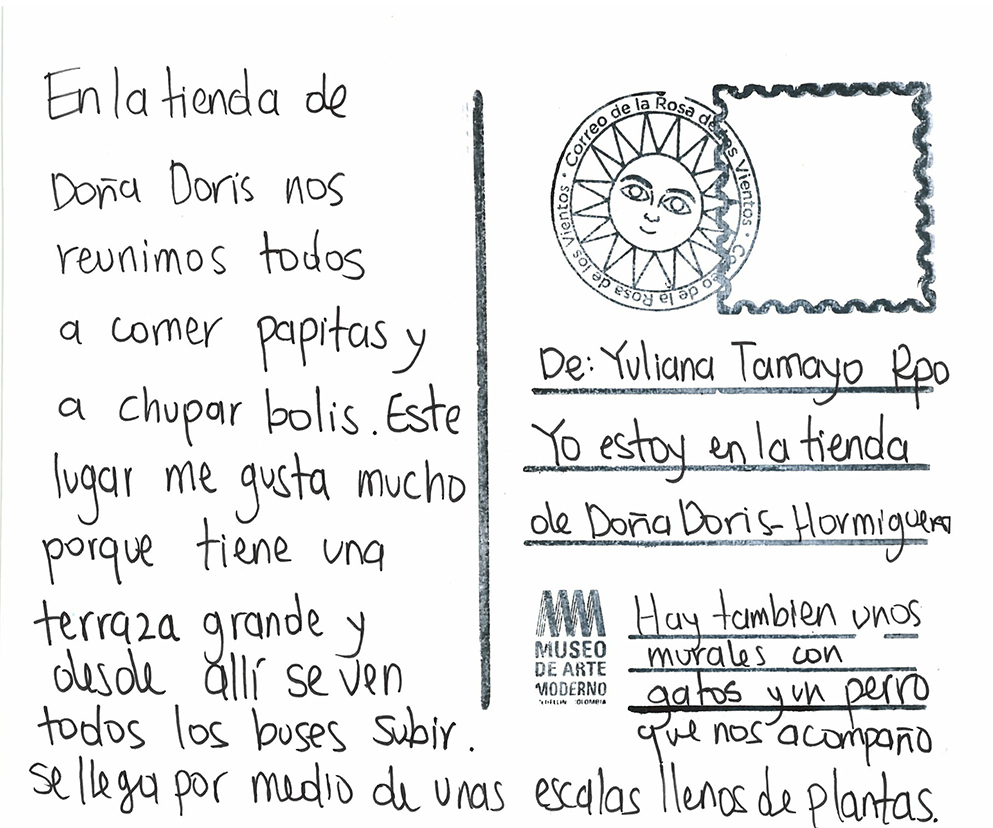 En la tienda de
Doña Doris nos
reunimos todos
a comer papitas y
a chupar bolis. Este
lugar me gusta mucho
porque tiene una
terraza grande y
desde allí se ven
todos los buses subir.
se llega por medio de unas escalas llenos de plantas.
Correo de la Rosa de los Vientos · Correo de la Rosa de los Vientos ·
De: Yuliana Tamayo Rpo
Yo estoy en la tienda
de Doña Doris - Hormiguero
MUSEO
DE ARTE
MODERNO
MEDELLÍN COLOMBIA
Hay tambien unos
murales con
gatos y un perro
que nos acompaño